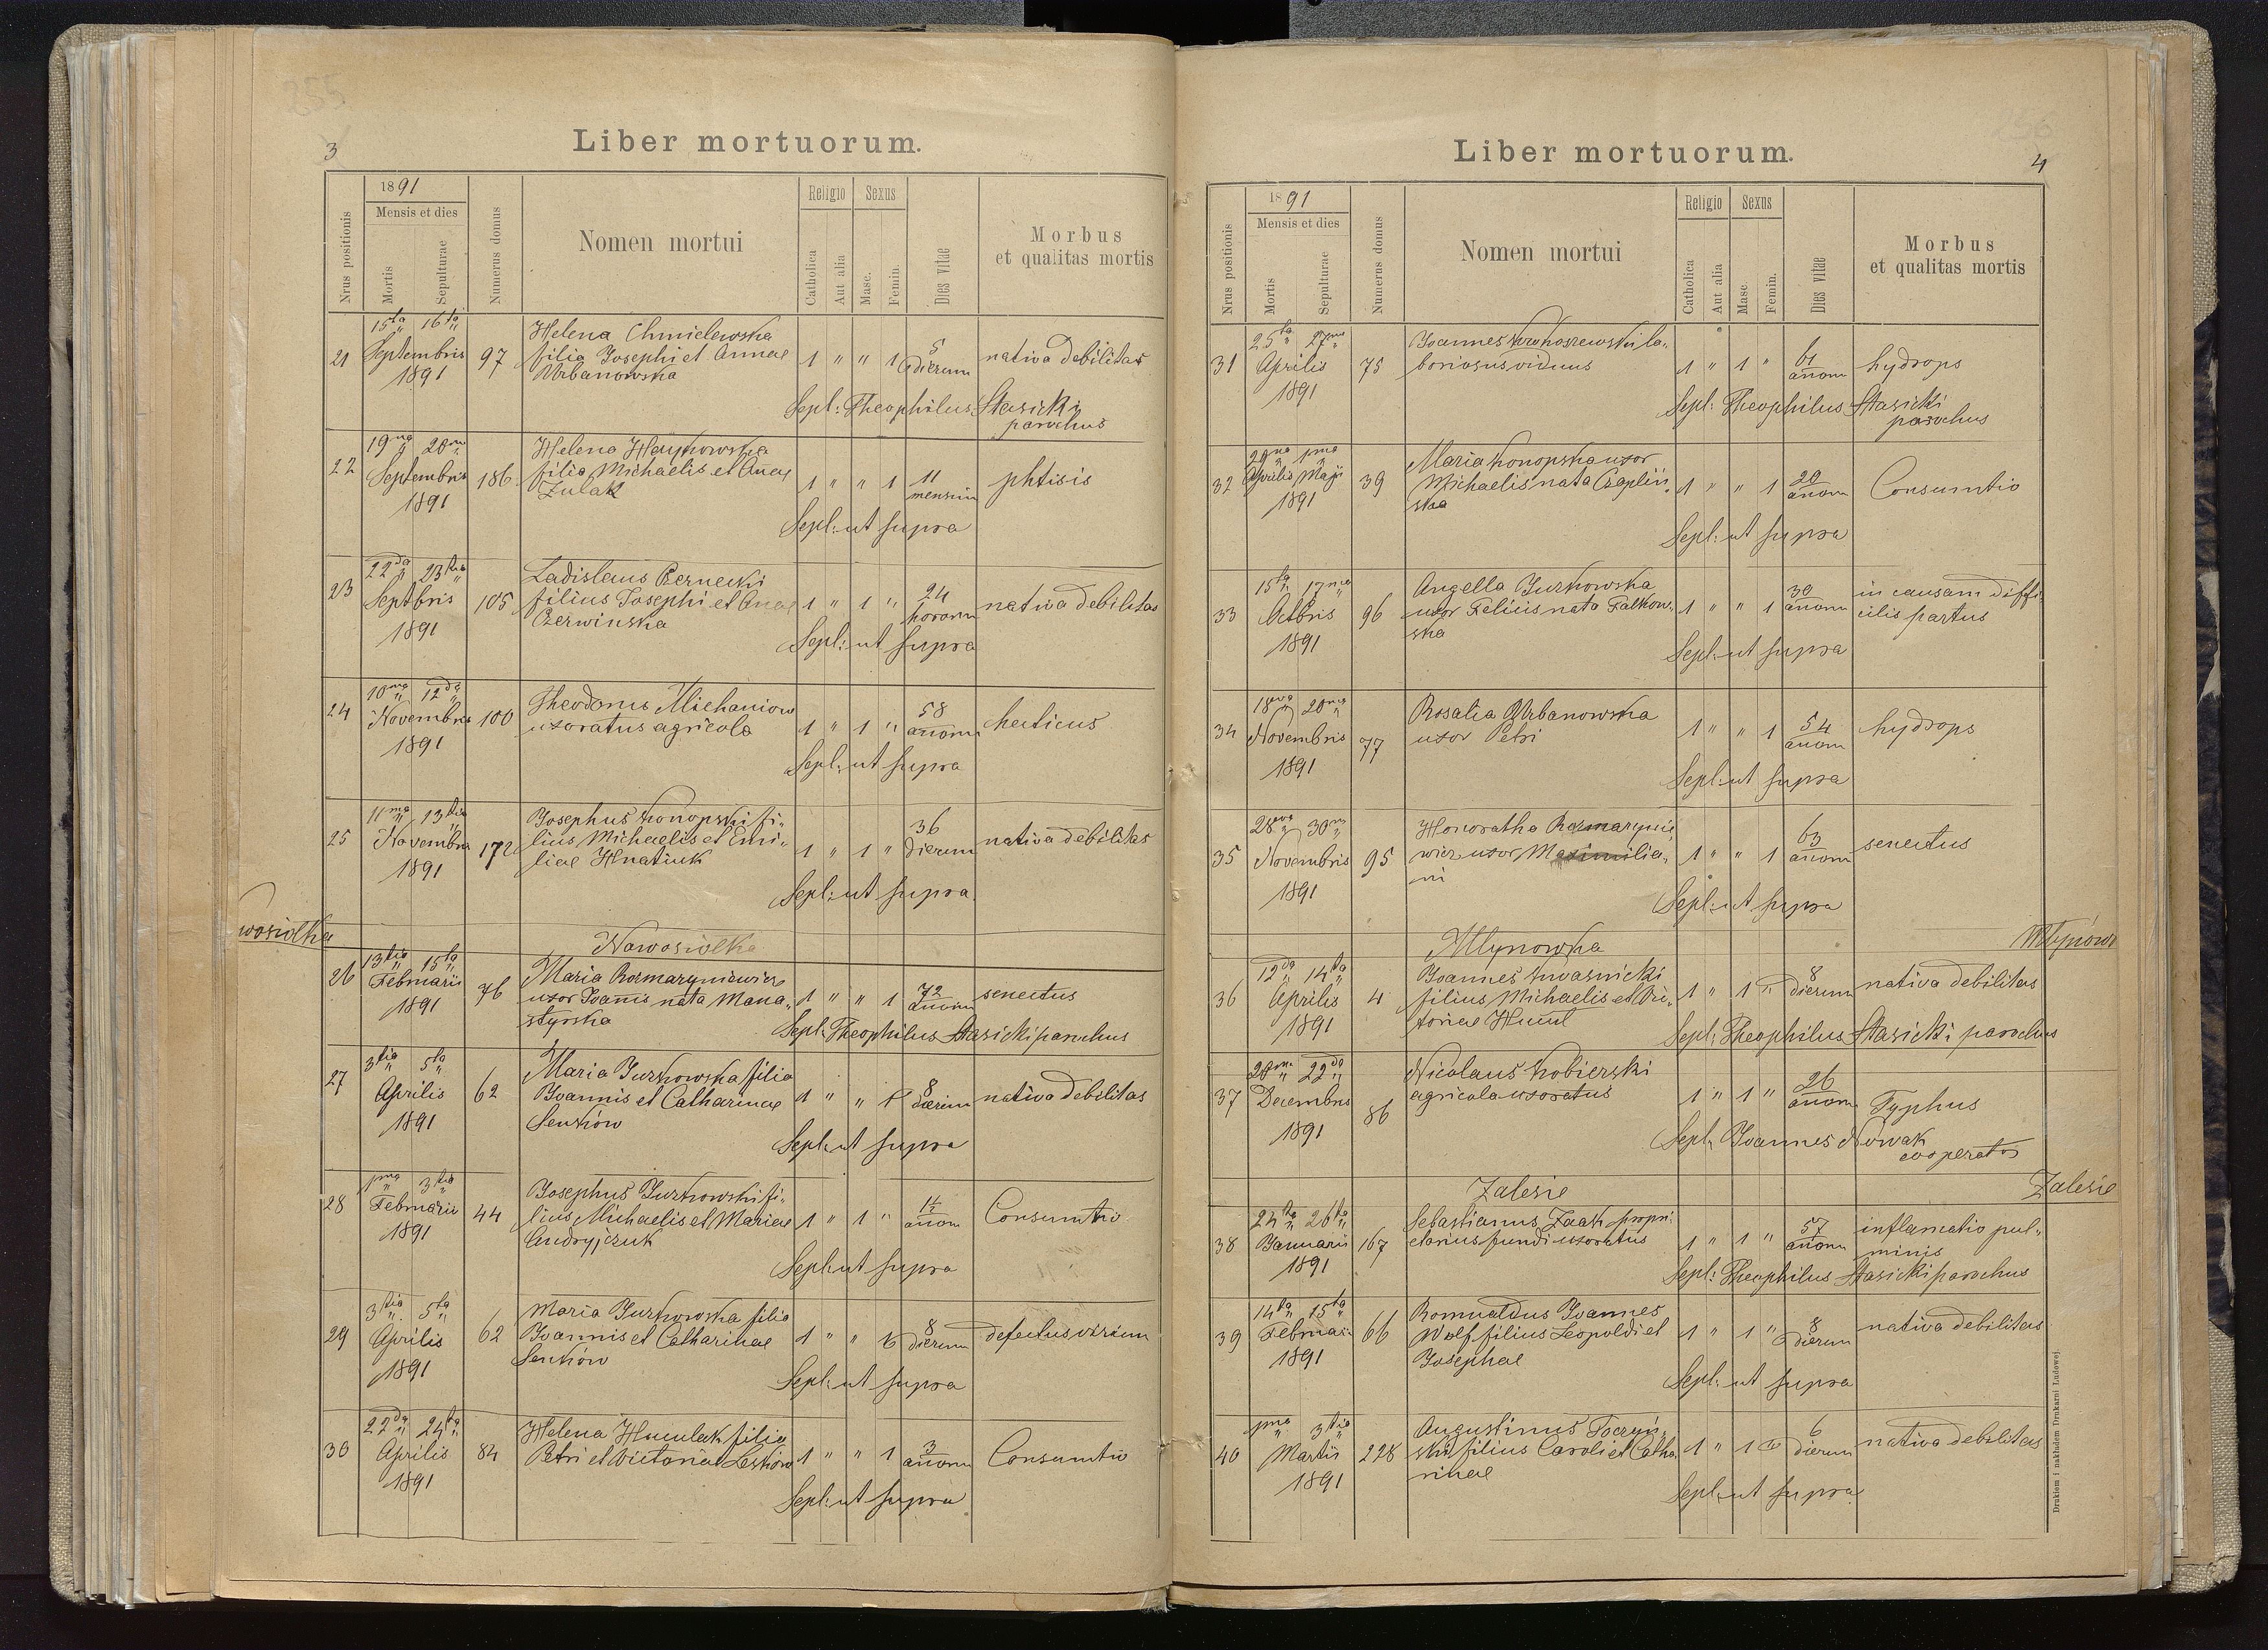 255
3
Liber mortuorum.
1891
Mensis et dies
Nrus positionis
Mortis
Sepulturae
Numerus domus
Nomen mortui
Religio
Catholica
Aut alia
Sexus
Masc.
Femin.
Dies vitae
Morbus
et qualitas mortis
15ta 16ta
21 Septembris 97
1891
Helena Chmielewska
filia Josephi et Annae
Urbanowska
1 " " 1 5 dierum nativa debilitas
Sepl: Theophilus Stasicki
parochus
19na 20ma
22 Septembris 186
1891
Helena
filia Michaelis et Anae
Zulak
1 " " 1 11 mensium phtisis
Sepl: ut supra
22da 23tia
23 Septbris 105
1891
Ladislaus Czernecki
filius Josephi et Anae
Czerwinska
1 " 1 " 24 horarum nativa debilitas
Sepl: ut supra
10ma 12da
24 Novembris 100
1891
Theodorus Michaniow
uxoratus agricola
1 " 1 " 58 anorum hecticus
Sepl: ut supra
11ma 13tia
25 Novembris 172
1891
Josephus Konopski fi-
lius Michaelis et Emi-
liae Hnatiuk
1 " 1 " 36 dierum nativa debilitas
Sepl: ut supra
wosiolka
Nowosiolka
13tia 15ta
26 Februarii 76
1891
Maria Rozmaryniewicz
uxor Joanis nata Mana-
styrska
1 " " 1 72 anorum senectus
Sepl: Theophilus Stasicki parochus
3tia 5ta
27 Aprilis 62
1891
Maria Jurkowska filia
Joannis et Catharinae
Senkiów
1 " " 1 8 dierum nativa debilitas
Sepl: ut supra
1ma 3tia
28 Februarii 44
1891
Josephus Jurkowski fi-
lius Michaelis et Mariae
Andryjczuk
1 " 1 " anorum Consumtio
Sepl: ut supra
3tia 5ta
29 Aprilis 62
1891
Maria Jurkowska filia
Joannis et Catharinae
Senkiów
1 " " 1 8 dierum defectus virium
Sepl: ut supra
22da 24ta
30 Aprilis 84
1891
Helena Huculak filia
Petri et Victoriae Leskiów
1 " " 1 3 anorum Consumtio
Sepl: ut supra
256
4
Liber mortuorum.
1891
Mensis et dies
Nrus positionis
Mortis
Sepulturae
Numerus domus
Nomen mortui
Religio
Catholica
Aut alia
Sexus
Masc
Femin.
Dies vitae
Morbus
et qualitas mortis
25ta 27ma
31 Aprilis 75
1891
Joannes la-
boriosus viduus
1 " 1 " 61 anorum hydrops
Sepl: Theophilus Stasicki
parochus
29na 1ma
32 Aprilis Maji 39
1891
Maria Konopska uxor
Michaelis nata Czapliń-
ska
1 " " 1 20 anorum Consumtio
Sepl: ut supra
15ta 17ma
33 Octbris 96
1891
Angella Jurkowska
uxor Felicis nata Falkow-
ska
1 " " 1 30 anorum in causam diffi-
cilis partus
Sepl: ut supra
18va 20ma
34 Novembris 77
1891
Rosalia Urbanowska
uxor Petri
1 " " 1 54 anorum hydrops
Sepl: ut supra
28va 30ma
35 Novembris 95
1891
Honoratha Rozmarynie
wicz uxor Maximilia-
ni
1 " " 1 63 anorum senectus
Sepl: ut supra
Młynowka
Młynow
12da 14ta
36 Aprilis 4
1891
Joannes Kwasnicki
filius Michaelis et Vic-
toriae
1 " 1 " 8 dierum nativa debilitas
Sepl: Theophilus Stasicki parochus
20ma 22da
37 Decembris 86
1891
Nicolaus Kobierski
agricola uxoratus
1 " 1 " 26 anorum Typhus
Sepl: Joannes Nowak
cooperator
Zalesie
Zalesie
24ta 26ta
38 Januarii 167
1891
Sebastianus Zaak propri-
etarius fundi uxoratus
1 " 1 " 57 anorum inflamatio pul-
minis
Sepl: Theophilus Stasicki parochus
14ta 15ta
39 Februari 66
1891
Romualdus Joannes
Wolf filius Leopoldi et
Josephae
1 " 1 " 8 dierum nativa debilitas
Sepl: ut supra
1ma 3tia
40 Martii 228
1891
Augustinus Toczyń-
ski filius Caroli et Catha-
rinae
1 " 1 " 6 dierum nativa debilitas
Sepl: ut supra
Drukiem i nakładem Drukarni Ludowej.